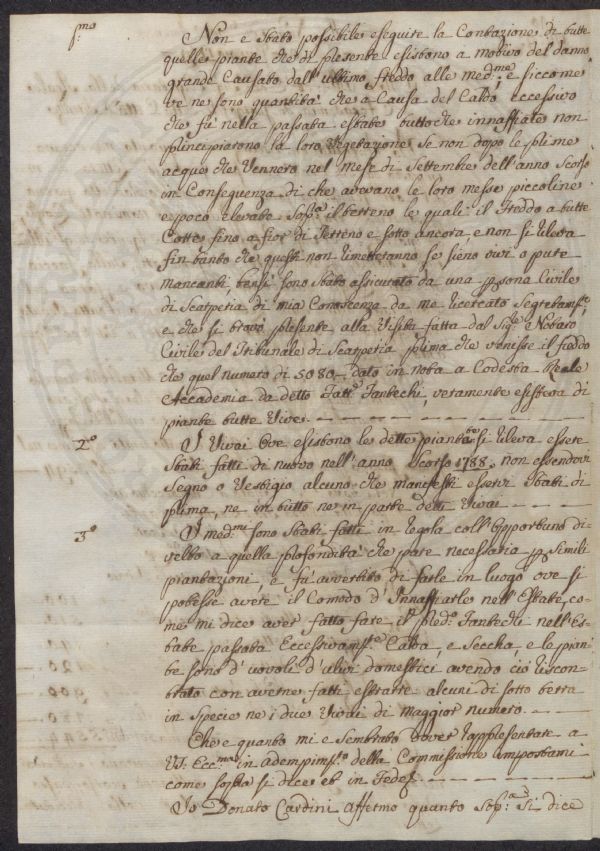 p.mo
Non è Stato possibile eseguire la Contazione di tutte
quelle piante che di presente esistono a motivo del danno
grande Causato dall'ultimo freddo alle med.me e siccome
ve ne sono quantità che a Causa del Caldo eccessivo
che fù nella passata estate tuttoche innaffiate non
principiarono la loro Vegetazione se non dopo le prime
acque che Vennero nel mese di Settembre dell'anno Scorso
in Conseguenza di che avevano le loro messe piccoline
e poco elevate Sop.a il terreno le quali il Freddo à tutte
Cotte fino a fior di Terreno e sotto ancora, e non si rileva
fin tanto che questi non rimetteranno se sieno vivi o pure
mancanti, bensì sono Stato assicurato da una psona Civile
di Scarperia di mia Conoscenza da me ricercato Segretam.te
e che si trovò presente alla Visita fatta dal Sig.re Notaro
Civile del Tribunale di Scarperia prima che venisse il freddo
che quel numero di 5080 dato in nota a Codesta Reale
Accademia da detto Fatt.e Tantechi, veramente esisteva di
piante tutte Vive.
2°
I Vivai Ove esistono le dette piante si rileva essere
Stati fatti di nuovo nell'anno Scorso 1788. non essendovi
Segno o Vestigio alcuno che manifesti esservi Stati di
prima, ne in tutto ne in parte detti Vivai
3°
I med.mi sono Stati fatti in regola coll'Opportuno di=
velto a quella profondità che pare necessaria p Simili
piantazioni, e fù avvertito di farle in luogo ove si
potesse avere il Comodo d'Innaffiarle nell'Estate, co=
me mi dice aver fatto fare il pred.o Tantechi nell'Es=
tate passata Eccessivam.te Calda, e Seccha, e le pian=
te sono d'uovoli d'ulivi domestici avendo ciò riscon=
trato con averne fatti estrarre alcuni di sotto terra
in Specie ne i due Vivai di maggior numero.
Che è quanto mi è Sembrato dover rappresentare a
VS. Ecc.ma in adempim.to della Commissione impostami
come sopra si dice et in Fede
Io Donato Cardini Affermo quanto Sop.a Si dice